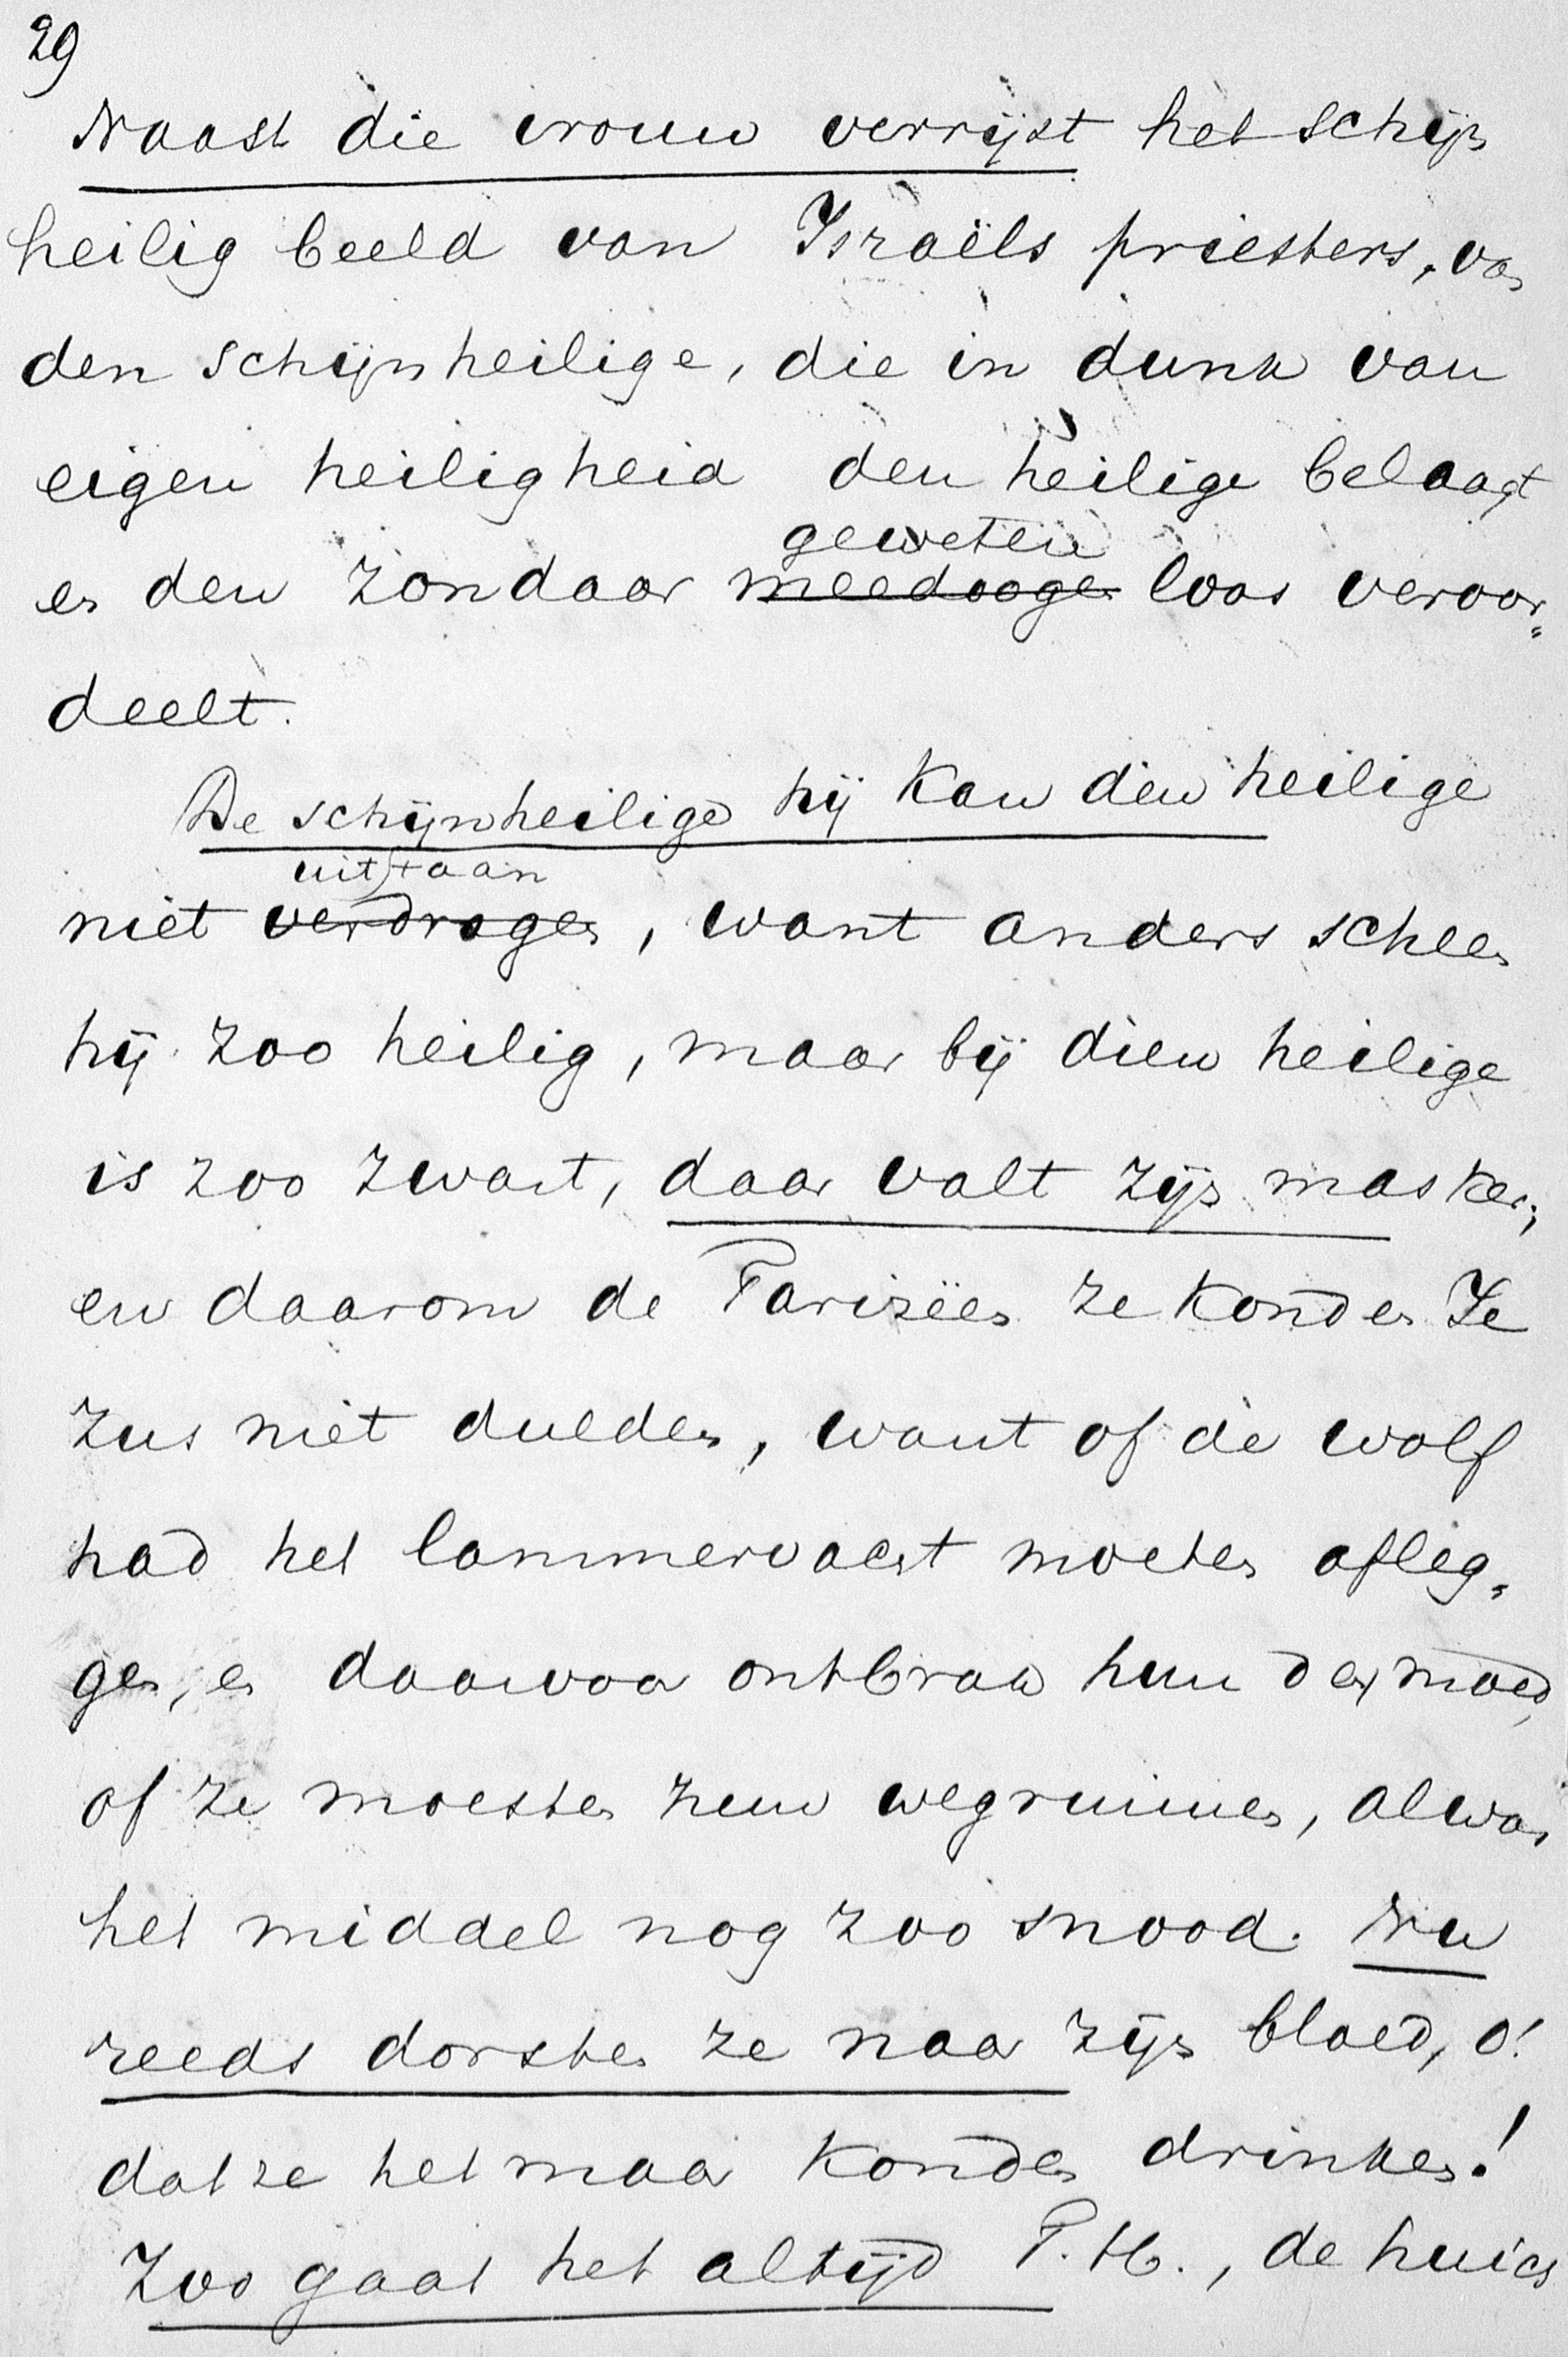 29
Naast die vrouw verrijst het schijn
heilig beeld van Israëls priesters, van
den schijnheilige, die in dunk van
eigen heiligheid den heilige belaagt
geweten
en den zondaar meedoogen loos veroor„
deelt.
De schijnheilige hij kan dien heilige
uitstaan
niet verdragen, want anders scheen
hij zoo heilig, maar bij dien heilige
is zoo zwart, daar valt zijn masker;
en daarom de Farizëen ze konden Je
zus niet dulden, want of de wolf
had het lammervacht moeten afleg„
gen, en daarvoor ontbrak hun den moed,
of ze moesten hem wegruimen, al was
het middel nog zoo snood. Nu
reeds dorsten ze naar zijn bloed, o!
dat ze het maar konden drinken!
Zoo gaat het altijd T. H., de huich